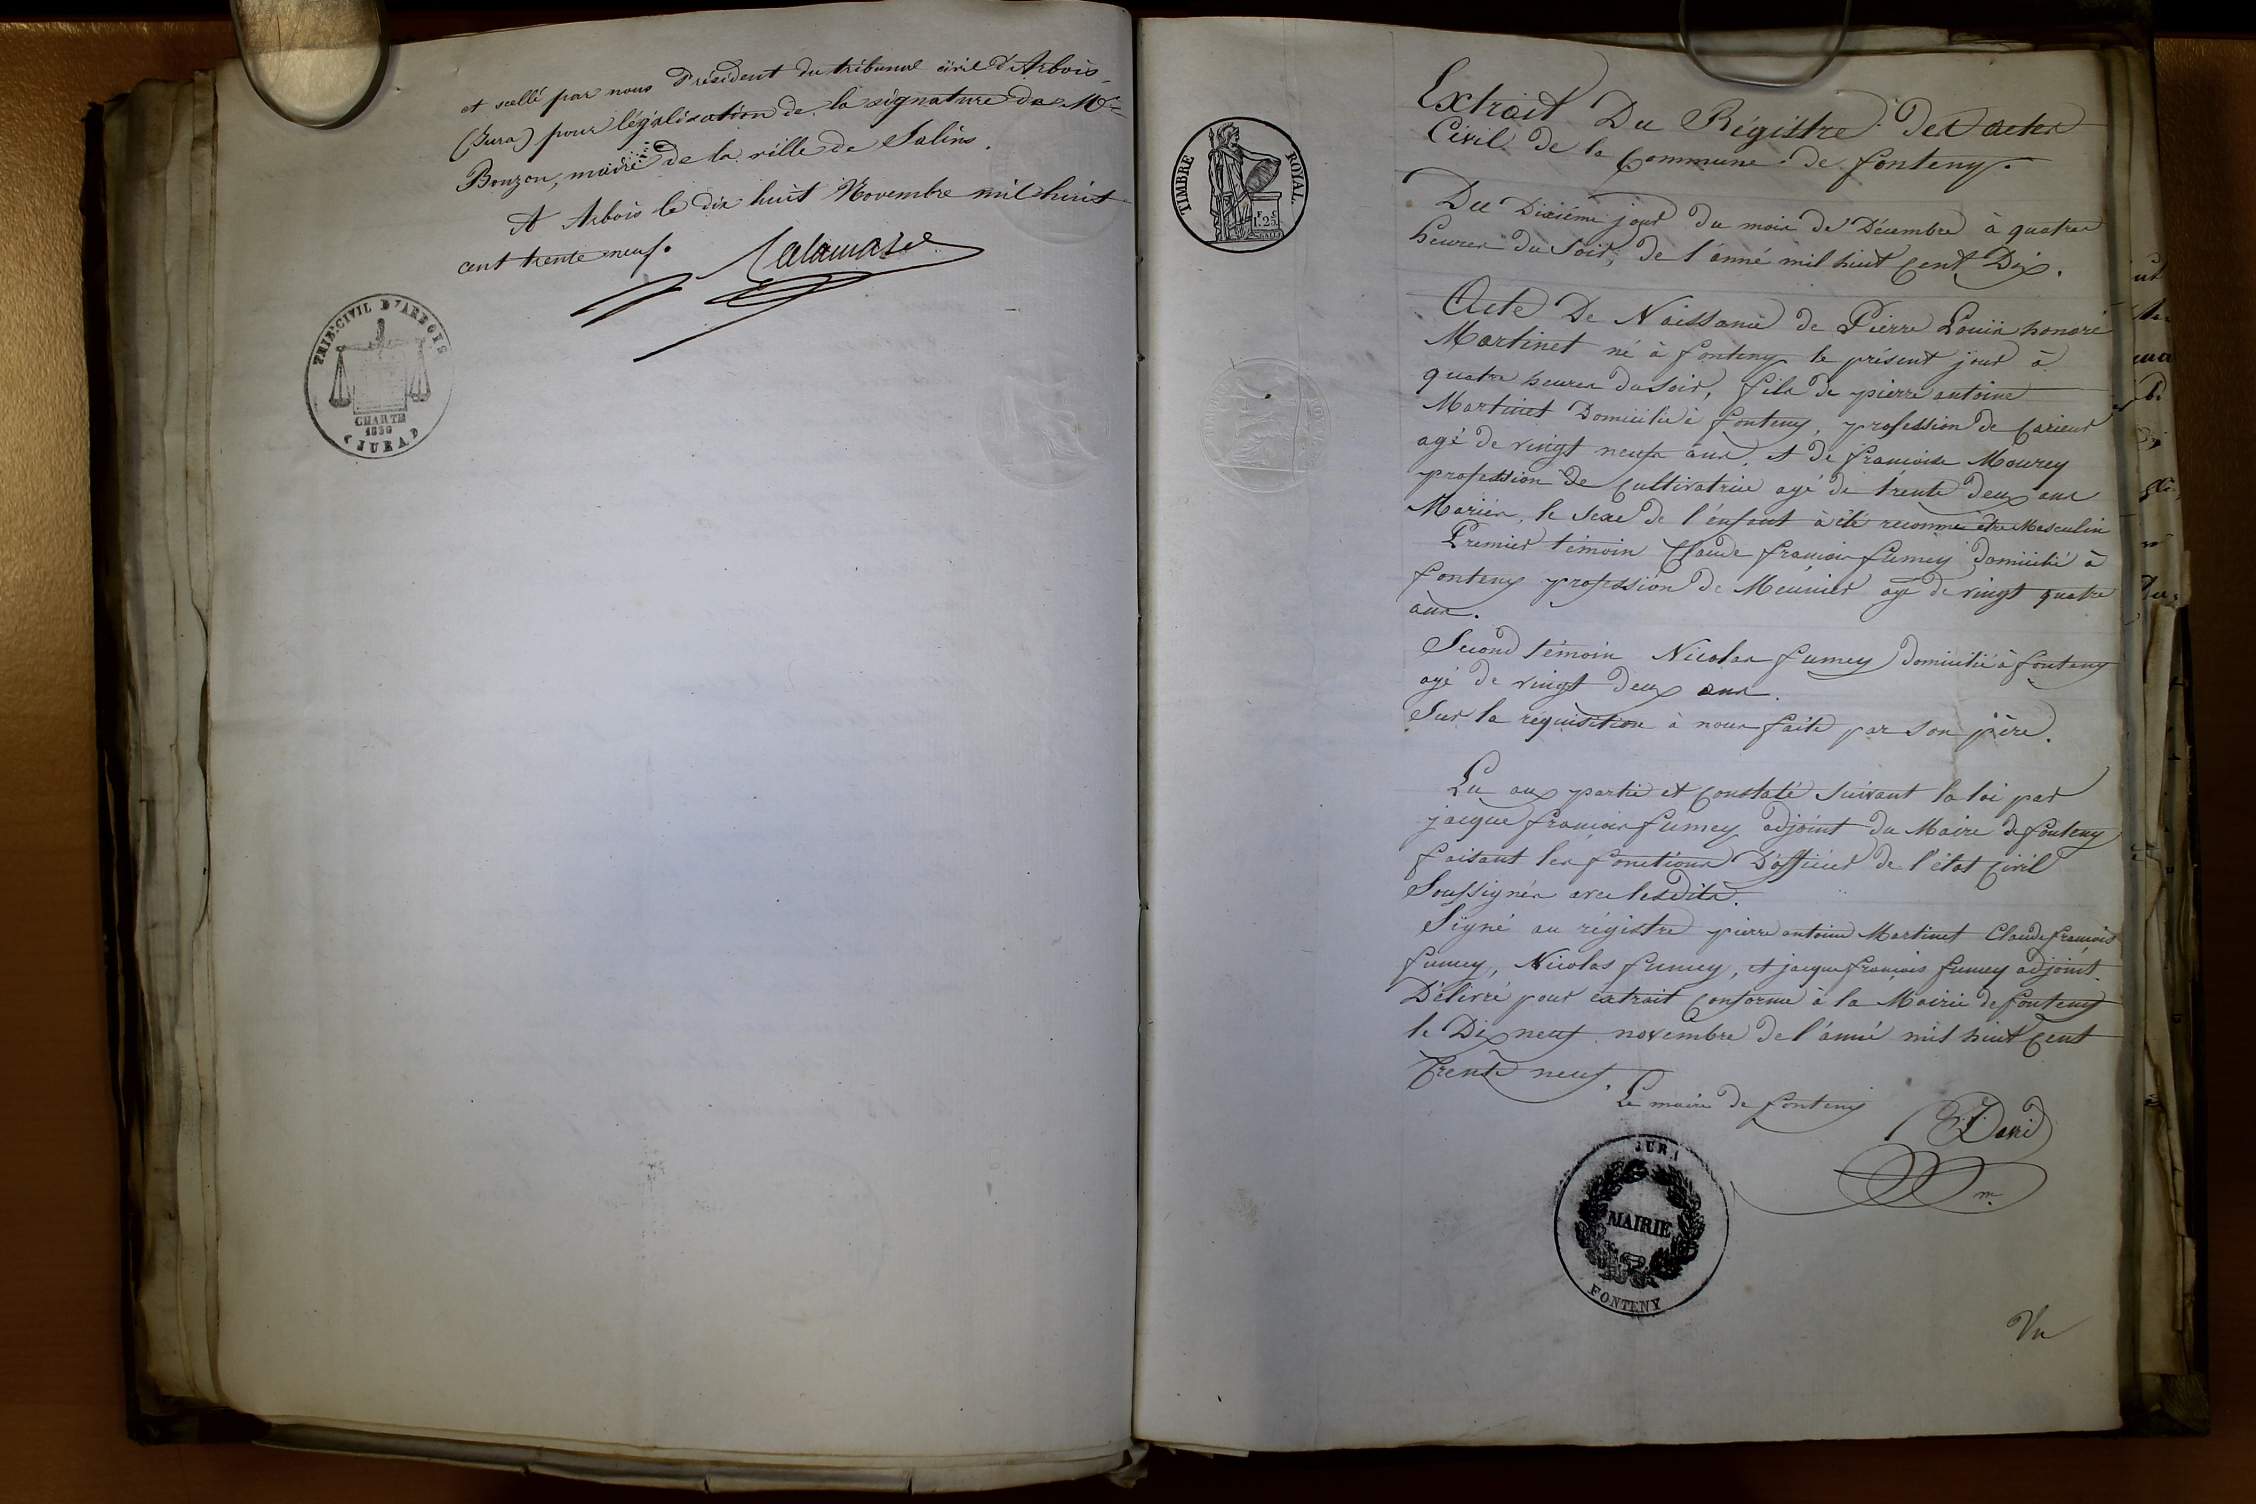 et scellé par nous Président du tribunal civil d'Arbois
(Jura) pour légalisation de la signature de Mr
Bouzon, maire de la ville de Salins.
A Arbois le dix huit Novembre mil huit
cent trente neuf.
TRIB. CIVIL D'ARBOIS
CHARTE
1830
(JURA)
TIMBRE ROYAL.
Extrait Du Régistre des actes
Civil de la Commune de fonteny.
Du Dixiéme jour du mois de Décembre à quatre
heures du Soir, de l'anné mil huit Cent Dix.
Acte De Naissance de Pierre Louis honoré
Martinet né à fonteny le présent jour à
quatre heures du soir, fils de pierre antoine
Martinet Domicilié à fonteny, profession de Carieur
agé de vingt neufs ans, et de francoise Mourey
profession de Cultivatrice agé de trente deux ans
Mariés, le sexe de l'enfant à été reconnu être Masculin
Premier témoin Claude francois fumey domicilié à
fonteny profession de Meûnier agé de vingt quatre
ans.
Second témoin Nicolas fumey domicilié à fonteny
agé de vingt deux ans.
Sur la réquisition à nous faite par son père.
Lu aux partie et Constaté suivant la loi par
jacque françois fumey adjoint du Maire de fonteny
faisant les fonctions D'officier de l'état Civil
Soussignés avec lesdits.
Signé au régistre pierre antoine Martinet Claude françois
fumey, Nicolas fumey, et jacque françois fumey adjoint.
Délivré pour extrait Conforme à la Mairie de fonteny
le Dix neuf novembre de l'anné mil huit Cent
trente neuf.
Le maire de fonteny
David
m.
JURA
MAIRIE
FONTENY
Vu